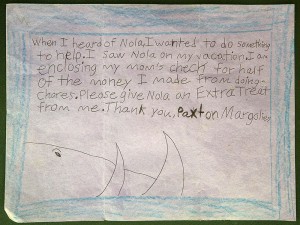 When I heard of Nola, I wanted to do something
to help. I saw Nola on my vacation. I am
enclosing my mom's check for half
of the money I made from doing
chores. Please give Nola an Extra Treat
from me. Thank you, Paxton Margolis